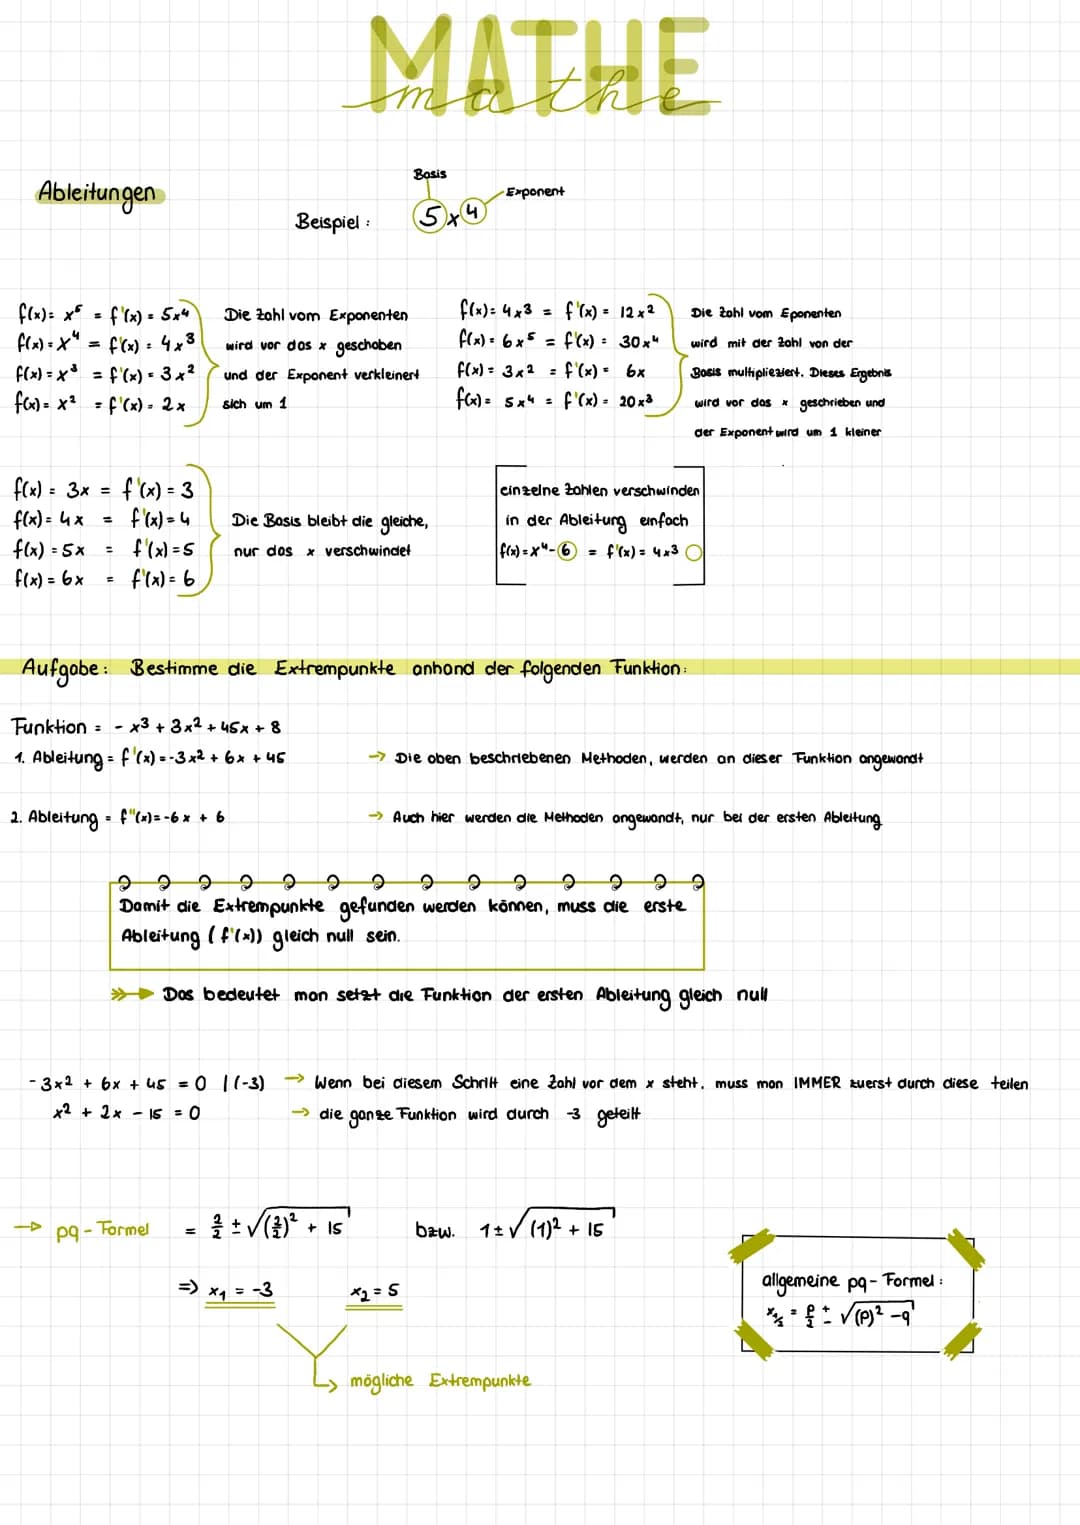 MATHE
mathe
Ableitungen
Beispiel :
Basis
Exponent
5x4
f(x)= x⁵ = f'(x) = 5x⁴
f(x) = x⁴ = f'(x) = 4x³
f(x) = x³ = f'(x) = 3x²
f(x) = x² = f'(x) = 2x
Die Zahl vom Exponenten
wird vor das x geschoben
und der Exponent verkleinert
sich um 1
f(x) = 4x3 = f'(x) = 12x²
f(x) = 6x⁵ = f'(x) = 30x⁴
f(x) = 3x2 = f'(x) = 6x
f(x) = 5x⁴ = f'(x) = 20x³
Die Zahl vom Eponenten
wird mit der Zahl von der
Basis multipliziert. Dieses Ergebnis
wird vor das x geschrieben und
der Exponent wird um 1 kleiner
f(x) = 3x = f'(x) = 3
f(x) = 4x = f'(x) = 4
f(x) = 5x = f'(x) = 5
f(x) = 6x = f'(x) = 6
Die Basis bleibt die gleiche,
nur das x verschwindet
einzelne Zahlen verschwinden
in der Ableitung einfach
f(x) = x⁴- 6 = f'(x) = 4x3
Aufgabe: Bestimme die Extrempunkte anhand der folgenden Funktion:
Funktion = - x3 + 3x2 + 45x + 8
1. Ableitung = f'(x) = -3x2 + 6x + 45
→ Die oben beschriebenen Methoden, werden an dieser Funktion angewandt
2. Ableitung = f"(x) = -6x + 6
→ Auch hier werden die Methoden angewandt, nur bei der ersten Ableitung
Damit die Extrempunkte gefunden werden können, muss die erste
Ableitung ( f'(x)) gleich null sein.
Das bedeutet man setzt die Funktion der ersten Ableitung gleich null
- 3x2 + 6x + 45 = 0 | (-3) → Wenn bei diesem Schritt eine Zahl vor dem x steht, muss man IMMER zuerst durch diese teilen
x2 + 2x - 15 = 0 → die ganze Funktion wird durch -3 geteilt
→ pq - Formel = 2/2 ± √(2/2)² + 15 bzw. 1 ± √(1)2 + 15
=> x₁ = -3 x₂ = 5
mögliche Extrempunkte
allgemeine pq - Formel :
x½ = p/2 ± √(p)² - q